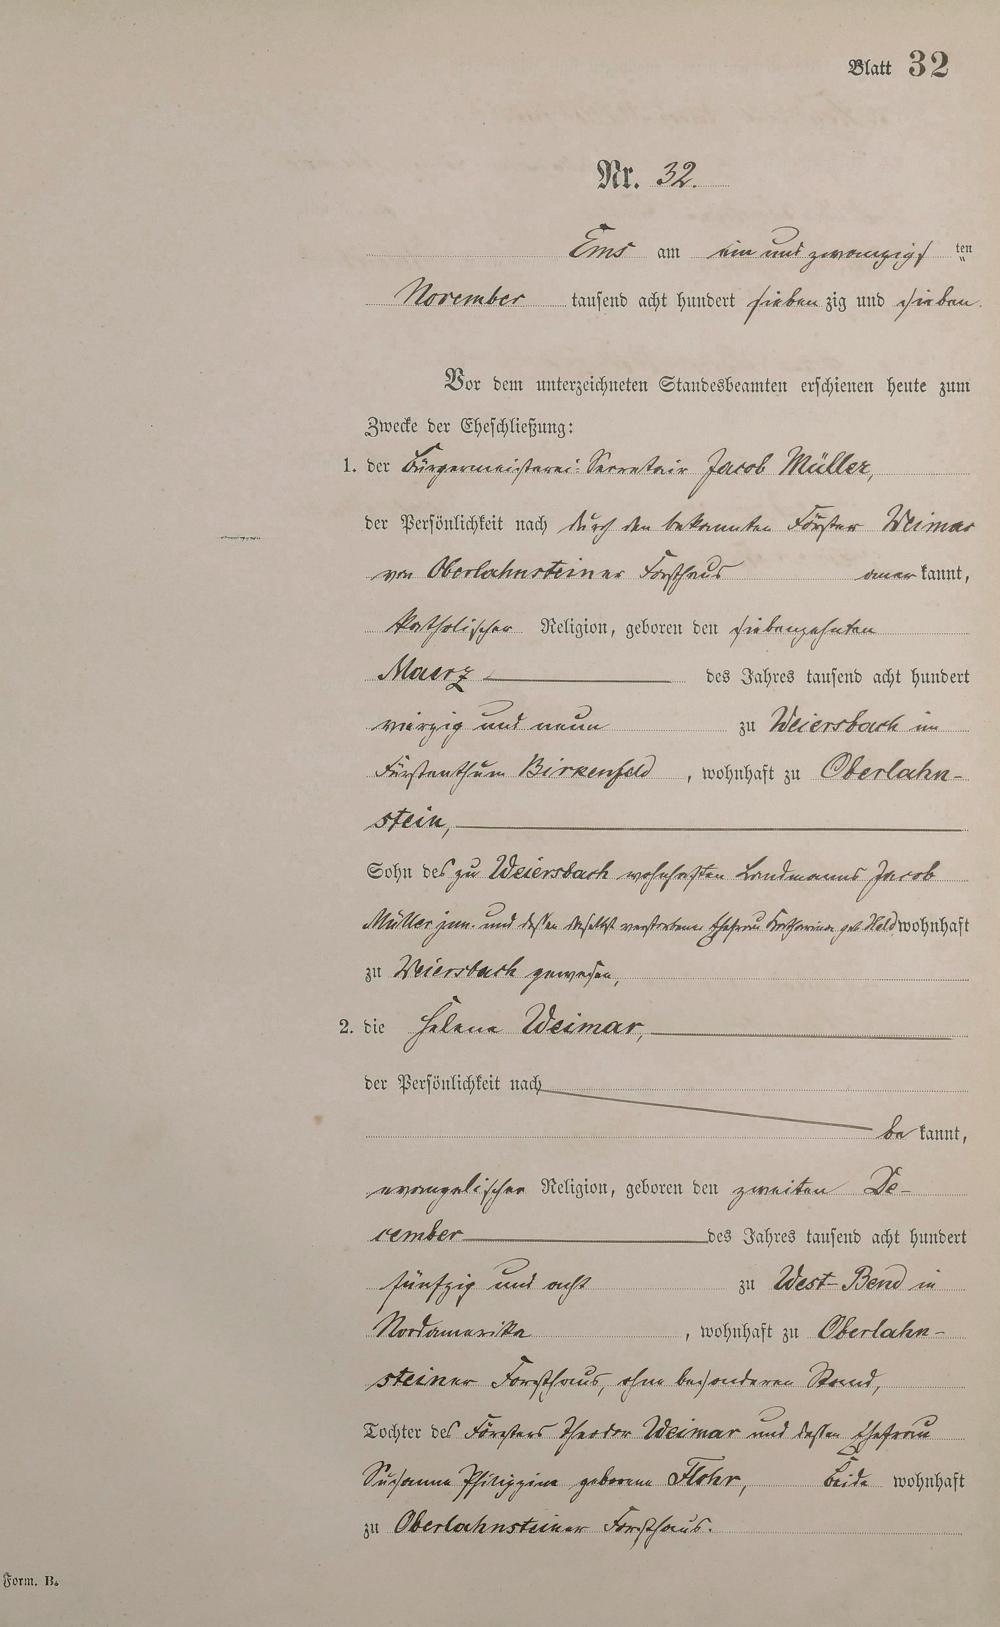 Blatt 32
Nr. 32.
Ems am ein und zwanzigs ten
November tausend acht hundert sieben zig und sieben.
Vor dem unterzeichneten Standesbeamten erschienen heute zum
Zwecke der Eheschließung:
1. der Bürgermeisterei-Secretair Jacob Müller,
der Persönlichkeit nach durch den bekannten Förster Weimar
von Oberlahnsteiner Forsthaus anerkannt,
katholischer Religion, geboren den siebenzehnten
Maerz des Jahres tausend acht hundert
vierzig und neun zu Weiersbach im
Fürstenthum Birkenfeld, wohnhaft zu Oberlahn-
stein,
Sohn des zu Weiersbach wohnhaften Landmanns Jacob
Müller jun. und dessen daselbst verstorbener Ehefrau Katharina geb. Held wohnhaft
zu Weiersbach gewesen,
2. die Helene Weimar,
der Persönlichkeit nach
be kannt,
evangelischer Religion, geboren den zweiten De-
cember des Jahres tausend acht hundert
fünfzig und acht zu West-Bend in
Nordamerika, wohnhaft zu Oberlahn-
steiner Forsthaus, ohne besonderen Stand,
Tochter des Försters Theodor Weimar und dessen Ehefrau
Susanna Philippine geborene Flohr, Beide wohnhaft
zu Oberlahnsteiner Forsthaus.
Form. B.